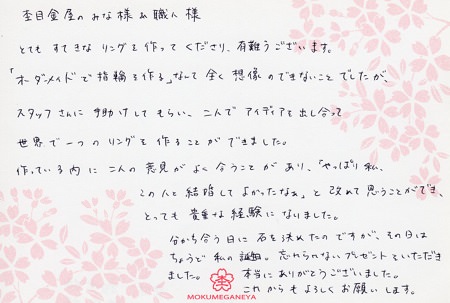 杢目金屋のみな様&職人様
とてもすてきなリングを作ってくださり、有難うございます。
「オーダーメイドで指輪を作る」なんて全く想像のできないことでしたが、
スタッフさんに手助けしてもらい、二人でアイディアを出し合って
世界で一つのリングを作ることができました。
作っている内に二人の意見がよく合うことがあり、「やっぱり私、
この人と結婚してよかったなぁ」と改めて思うことができ、
とっても貴重な経験になりました。
分かち合う日に石を決めたのですが、その日は
ちょうど私の誕生日。忘れられないプレゼントといただき
ました。本当にありがとうございました。
これからもよろしくお願いします。
MOKUMEGANEYA